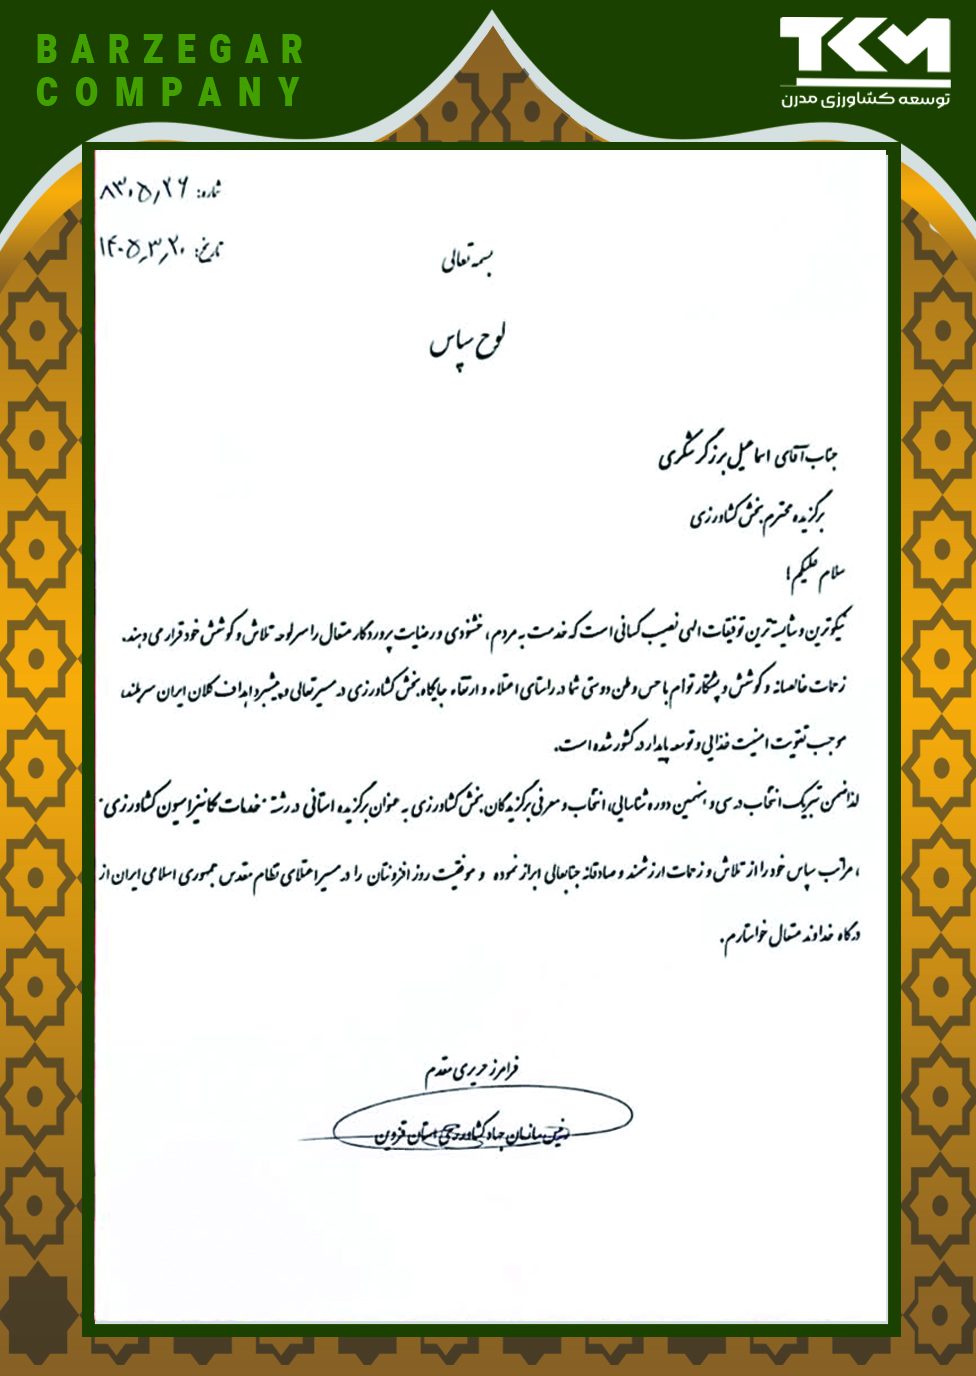 BARZEGAR
COMPANY
TKM
توسعه کشاورزی مدرن
شماره: ۸۳۰۵٫۲۶
تاریخ: ۱۴۰۵٫۳٫۲۰
بسمه تعالی
لوح سپاس
جناب آقای اسماعیل برزگر شکری
برگزیده محترم بخش کشاورزی
سلام علیکم؛
نیکوترین و شایسته ترین توفیقات الهی نصیب کسانی است که خدمت به مردم، خشنودی و رضایت پروردگار متعال را سرلوحه تلاش و کوشش خود قرار می دهند.
زحمات خالصانه و کوشش و پشتکار توام با حس وطن دوستی شما در راستای اعتلاء و ارتقاء جایگاه بخش کشاورزی در مسیر تعالی و پیشبرد اهداف کلان ایران سربلند،
موجب تقویت امنیت غذایی و توسعه پایدار در کشور شده است.
لذا ضمن تبریک انتخاب در سی و دوره شناسایی، انتخاب و معرفی برگزیدگان بخش کشاورزی به عنوان برگزیده استانی در رشته "خدمات مکانیزاسیون کشاورزی"
، مراتب سپاس خود را از تلاش و زحمات ارزشمند و صادقانه جنابعالی ابراز نموده و موفقیت روز افزونتان را در مسیر اعتلای نظام مقدس جمهوری اسلامی ایران از
درگاه خداوند متعال خواستارم.
فرامرز حریری مقدم
رئیس سازمان جهاد کشاورزی استان قزوین